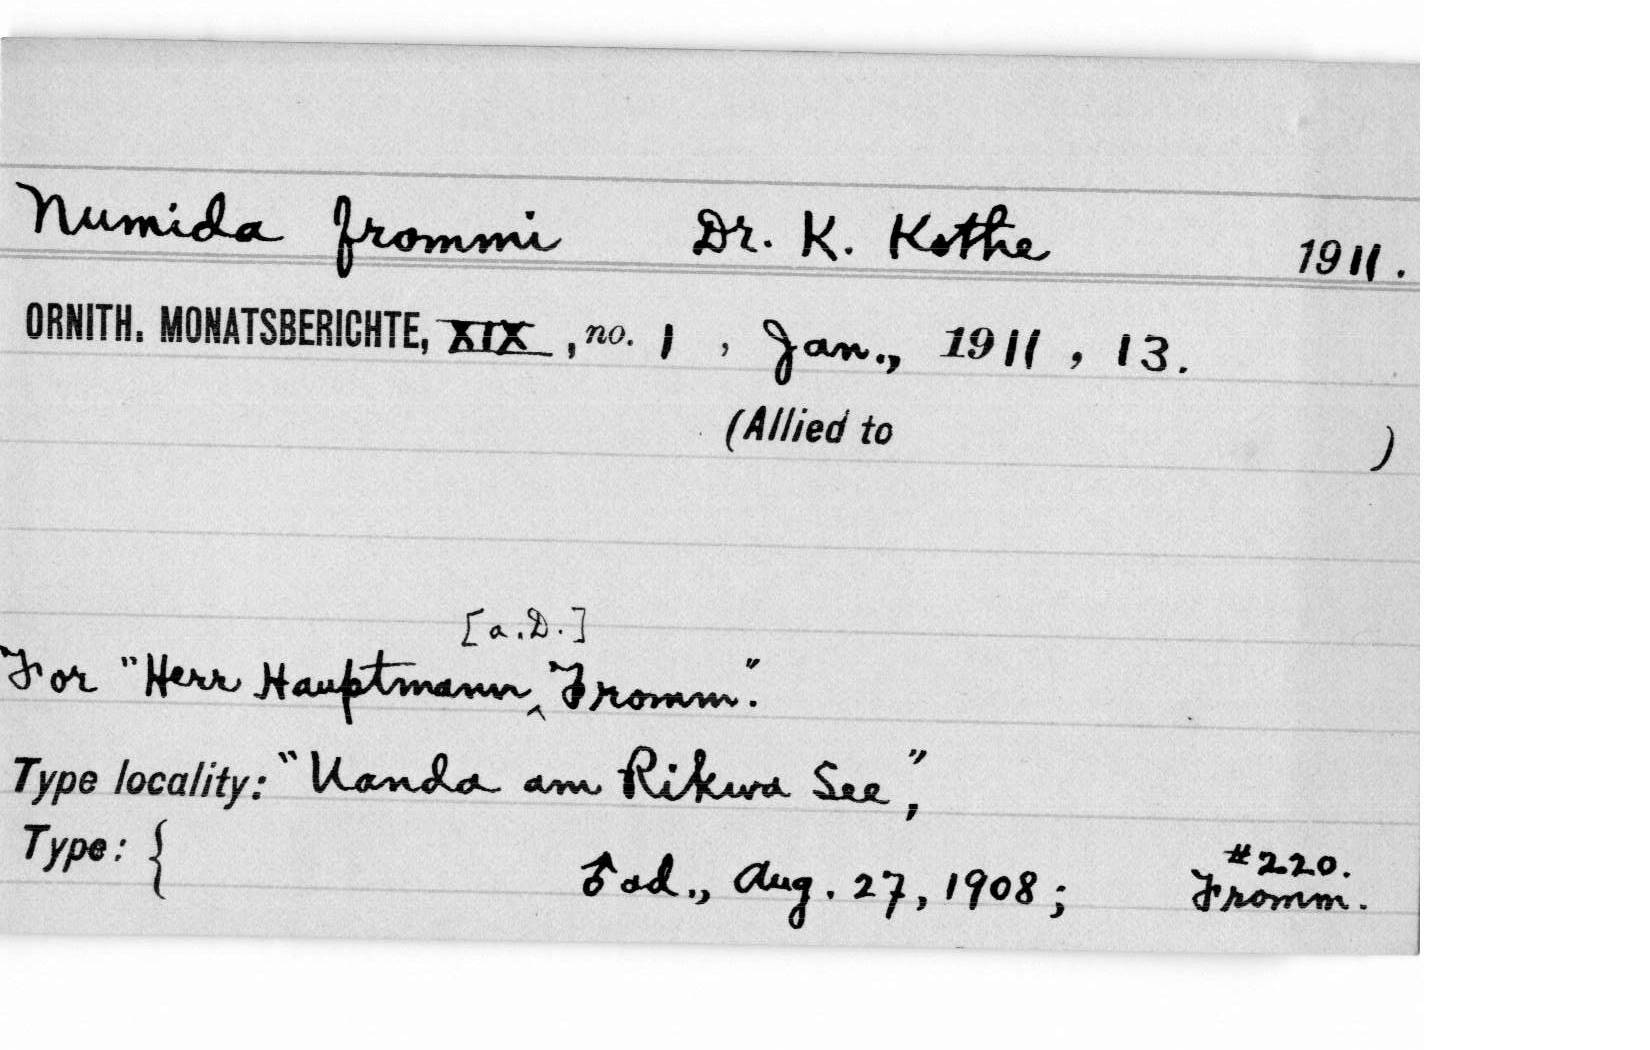 Numida frommi Dr. K. Kothe 1911.
ORNITH. MONATSBERICHTE, XIX, no. 1, Jan., 1911, 13.
(Allied to )
[a.D.]
For "Herr Hauptmann ‸ Fromm".
Type locality: "Uanda am Rikwa See",
Type: { ♂ ad., Aug. 27, 1908; #220.
Fromm.